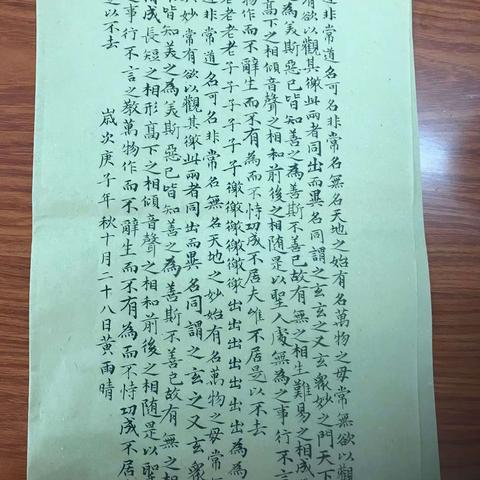 非常道名可名非常名無名天地之始有名萬物之母常無欲以觀
有欲以觀其徼此兩者同出而異名同謂之玄玄之又玄衆妙之門天下
為美斯惡已皆知善之為善斯不善已故有無之相生難易之相成
髙下之相傾音聲之相和前後之相随是以聖人處無為之事行不言
物作而不辭生而不有為而不恃功成不居夫唯不居是以不去
老老老子子子子子子徼徼徼徼徼出出出出出出為為
道非常道名可名非常名無名天地之妙始有名萬物之母常
其妙常有欲以觀其徼此兩者同出而異名同謂之玄之又玄衆
皆知美之為美斯惡已皆知善之為善斯不善已故有無之相
相成長短之相形髙下之相傾音聲之相和前後之相随是以聖
之事行不言之敎萬物作而不辭生而不有為而不恃功成不居
之以不去
歲次庚子年秋十月二十八日黃雨晴